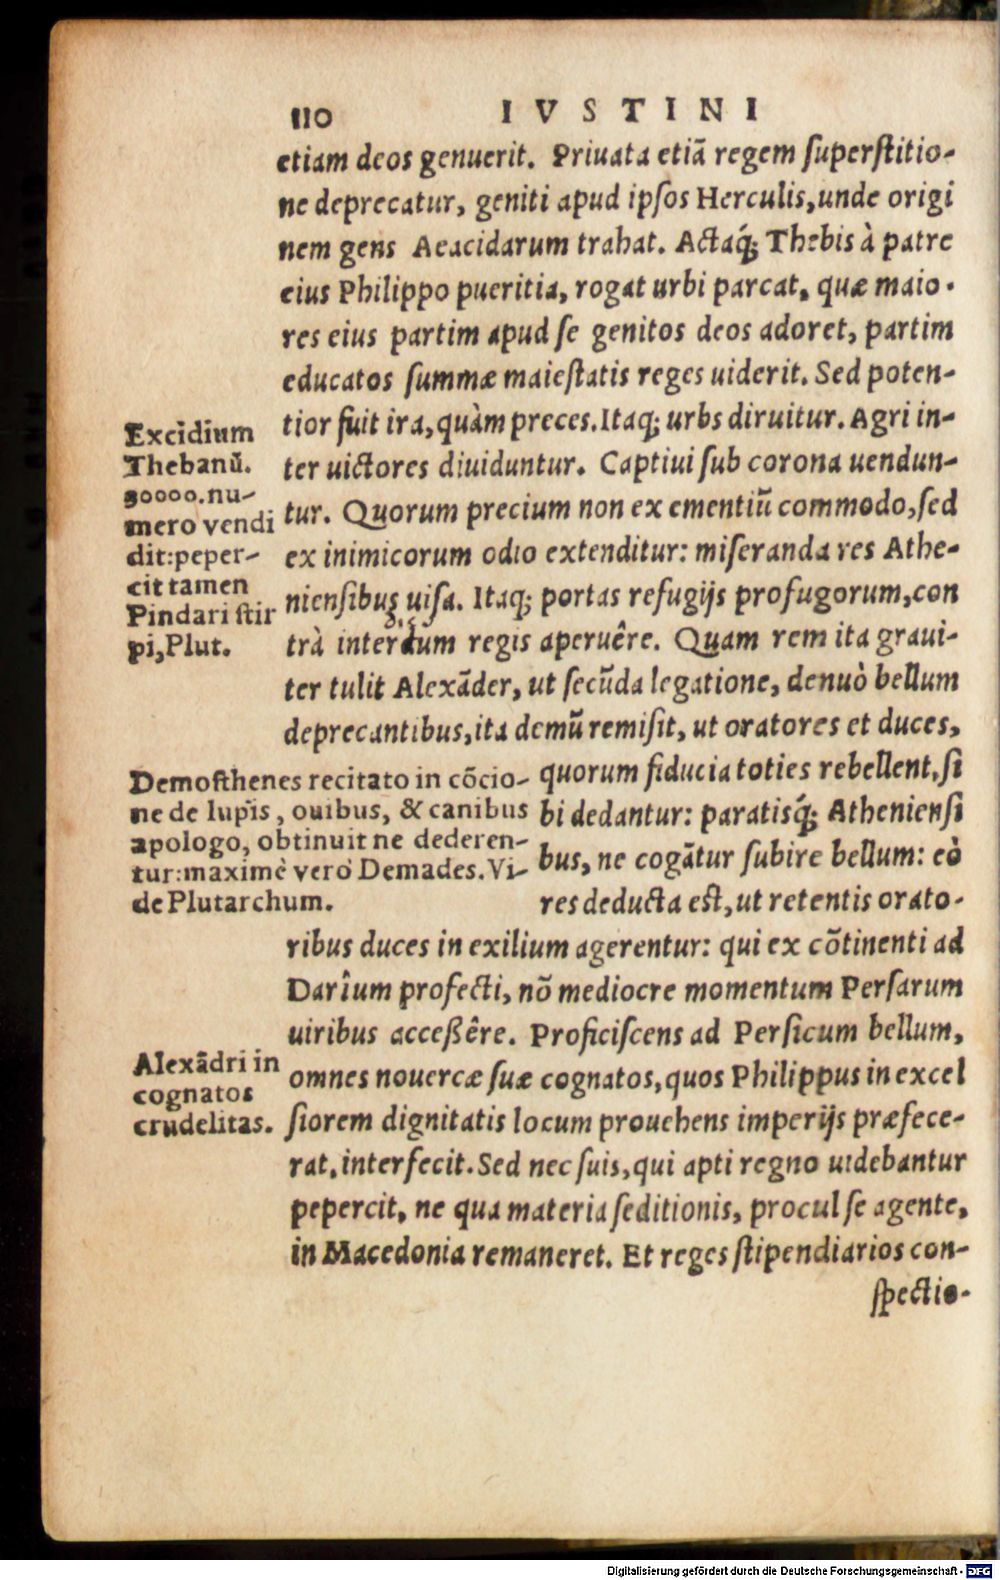 110 IVSTINI
etiam deos genuerit. Priuata etiā regem ſuperſtitio-
ne deprecatur, geniti apud ipſos Herculis,unde origi
nem gens Aeacidarum trahat. Actaq́; Thebis à patre
eius Philippo pueritia, rogat urbi parcat, quæ maio-
res eius partim apud ſe genitos deos adoret, partim
educatos ſummæ maieſtatis reges uiderit. Sed poten-
tior fuit ira,quàm preces.Itaq; urbs diruitur. Agri in-
ter uictores diuiduntur. Captiui ſub corona uendun-
tur. Quorum precium non ex ementiū commodo,ſed
ex inimicorum odio extenditur: miſeranda res Athe-
nienſibus uiſa. Itaq; portas refugijs profugorum,con
trà interdictum regis aperuêre. Quam rem ita graui-
ter tulit Alexāder, ut ſecūda legatione, denuò bellum
deprecantibus,ita demū remiſit, ut oratores et duces,
quorum fiducia toties rebellent,ſi
bi dedantur: paratisq́; Athenienſi
bus, ne cogātur ſubire bellum: eò
res deducta eſt,ut retentis orato-
ribus duces in exilium agerentur: qui ex cōtinenti ad
Darîum profecti, nō mediocre momentum Perſarum
uiribus acceßêre. Proficiſcens ad Perſicum bellum,
omnes nouercæ ſuæ cognatos,quos Philippus in excel
ſiorem dignitatis locum prouehens imperijs præfece-
rat,interfecit.Sed nec ſuis,qui apti regno uidebantur
pepercit, ne qua materia ſeditionis, procul ſe agente,
in Macedonia remaneret. Et reges ſtipendiarios con-
ſpectio-
Excidium
Thebanū.
30000.nu-
mero vendi
dit:peper-
cit tamen
Pindari ſtir
pi,Plut.
Demoſthenes recitato in cōcio-
ne de lupis, ouibus, & canibus
apologo, obtinuit ne dederen-
tur:maximè verò Demades. Vi-
de Plutarchum.
Alexādri in
cognatos
crudelitas.
Digitalisierung gefördert durch die Deutsche Forschungsgemeinschaft - DFG